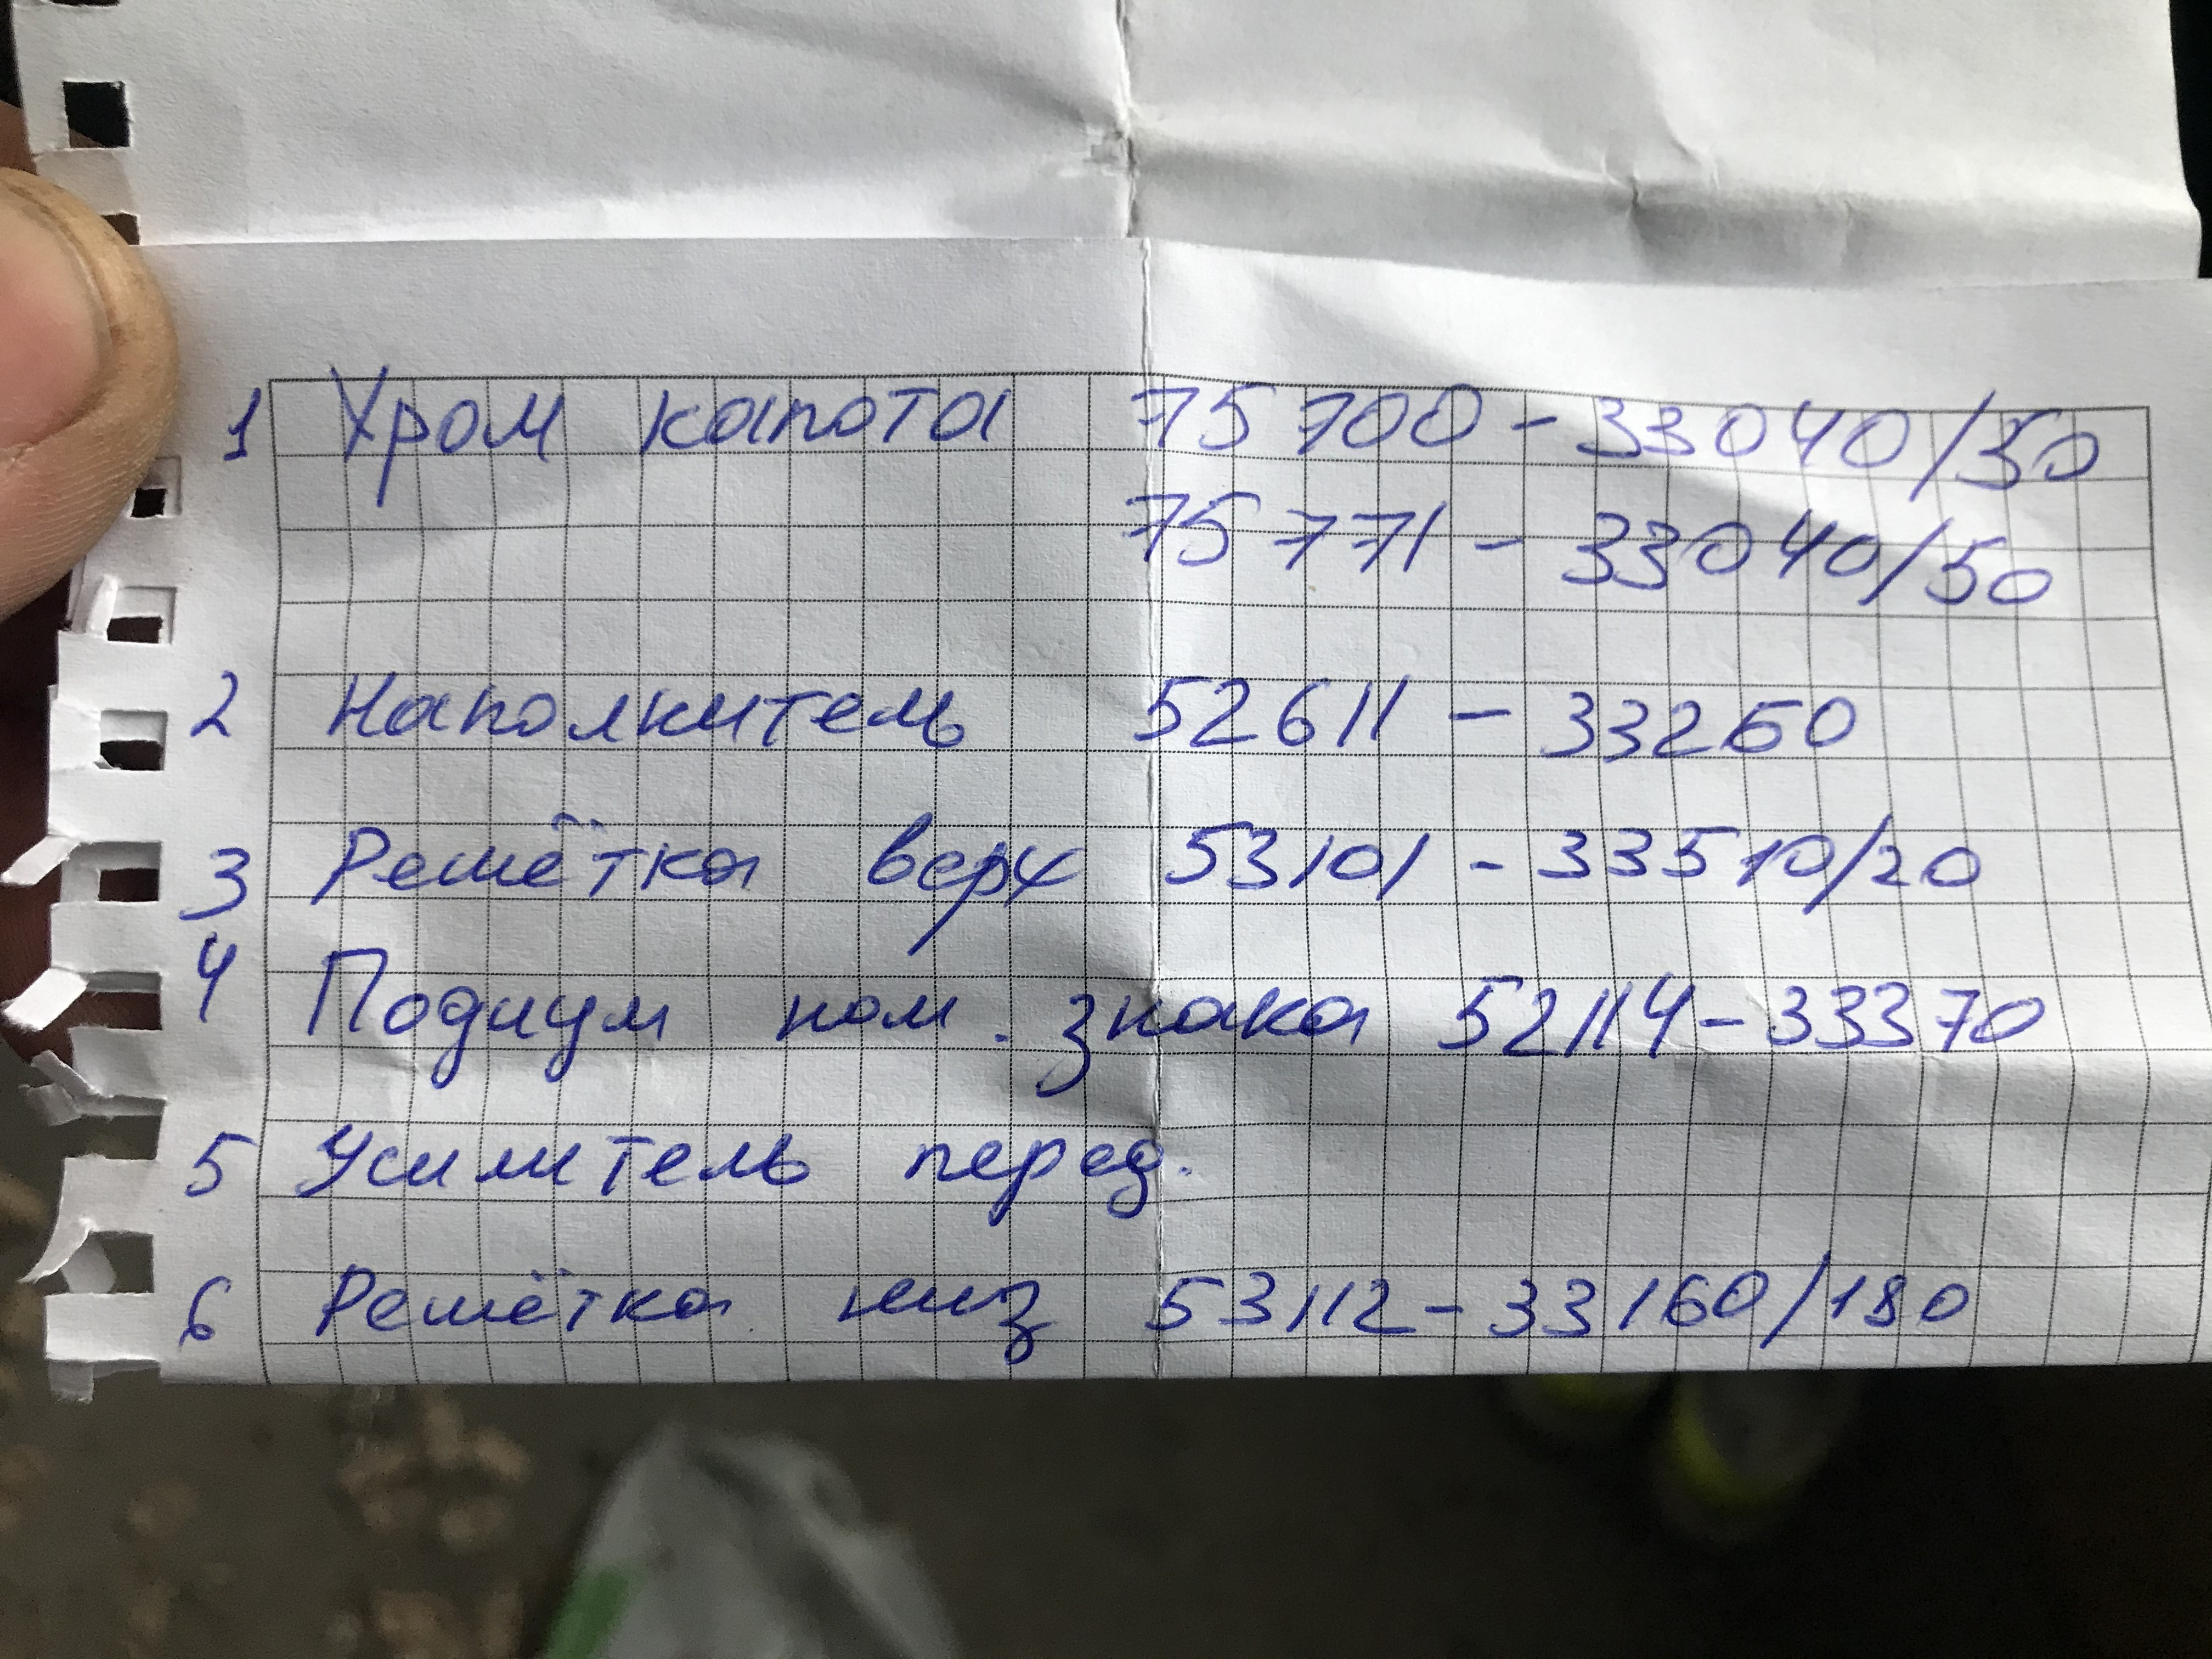 1 Хром капота 75700-33040/50
75771-33040/50
2 Наполнитель 52611-33260
3 Решётка верх 53101-33510/20
4 Подиум ном. знака 52114-33370
5 Усилитель перед.
6 Решётка низ 53112-33160/180